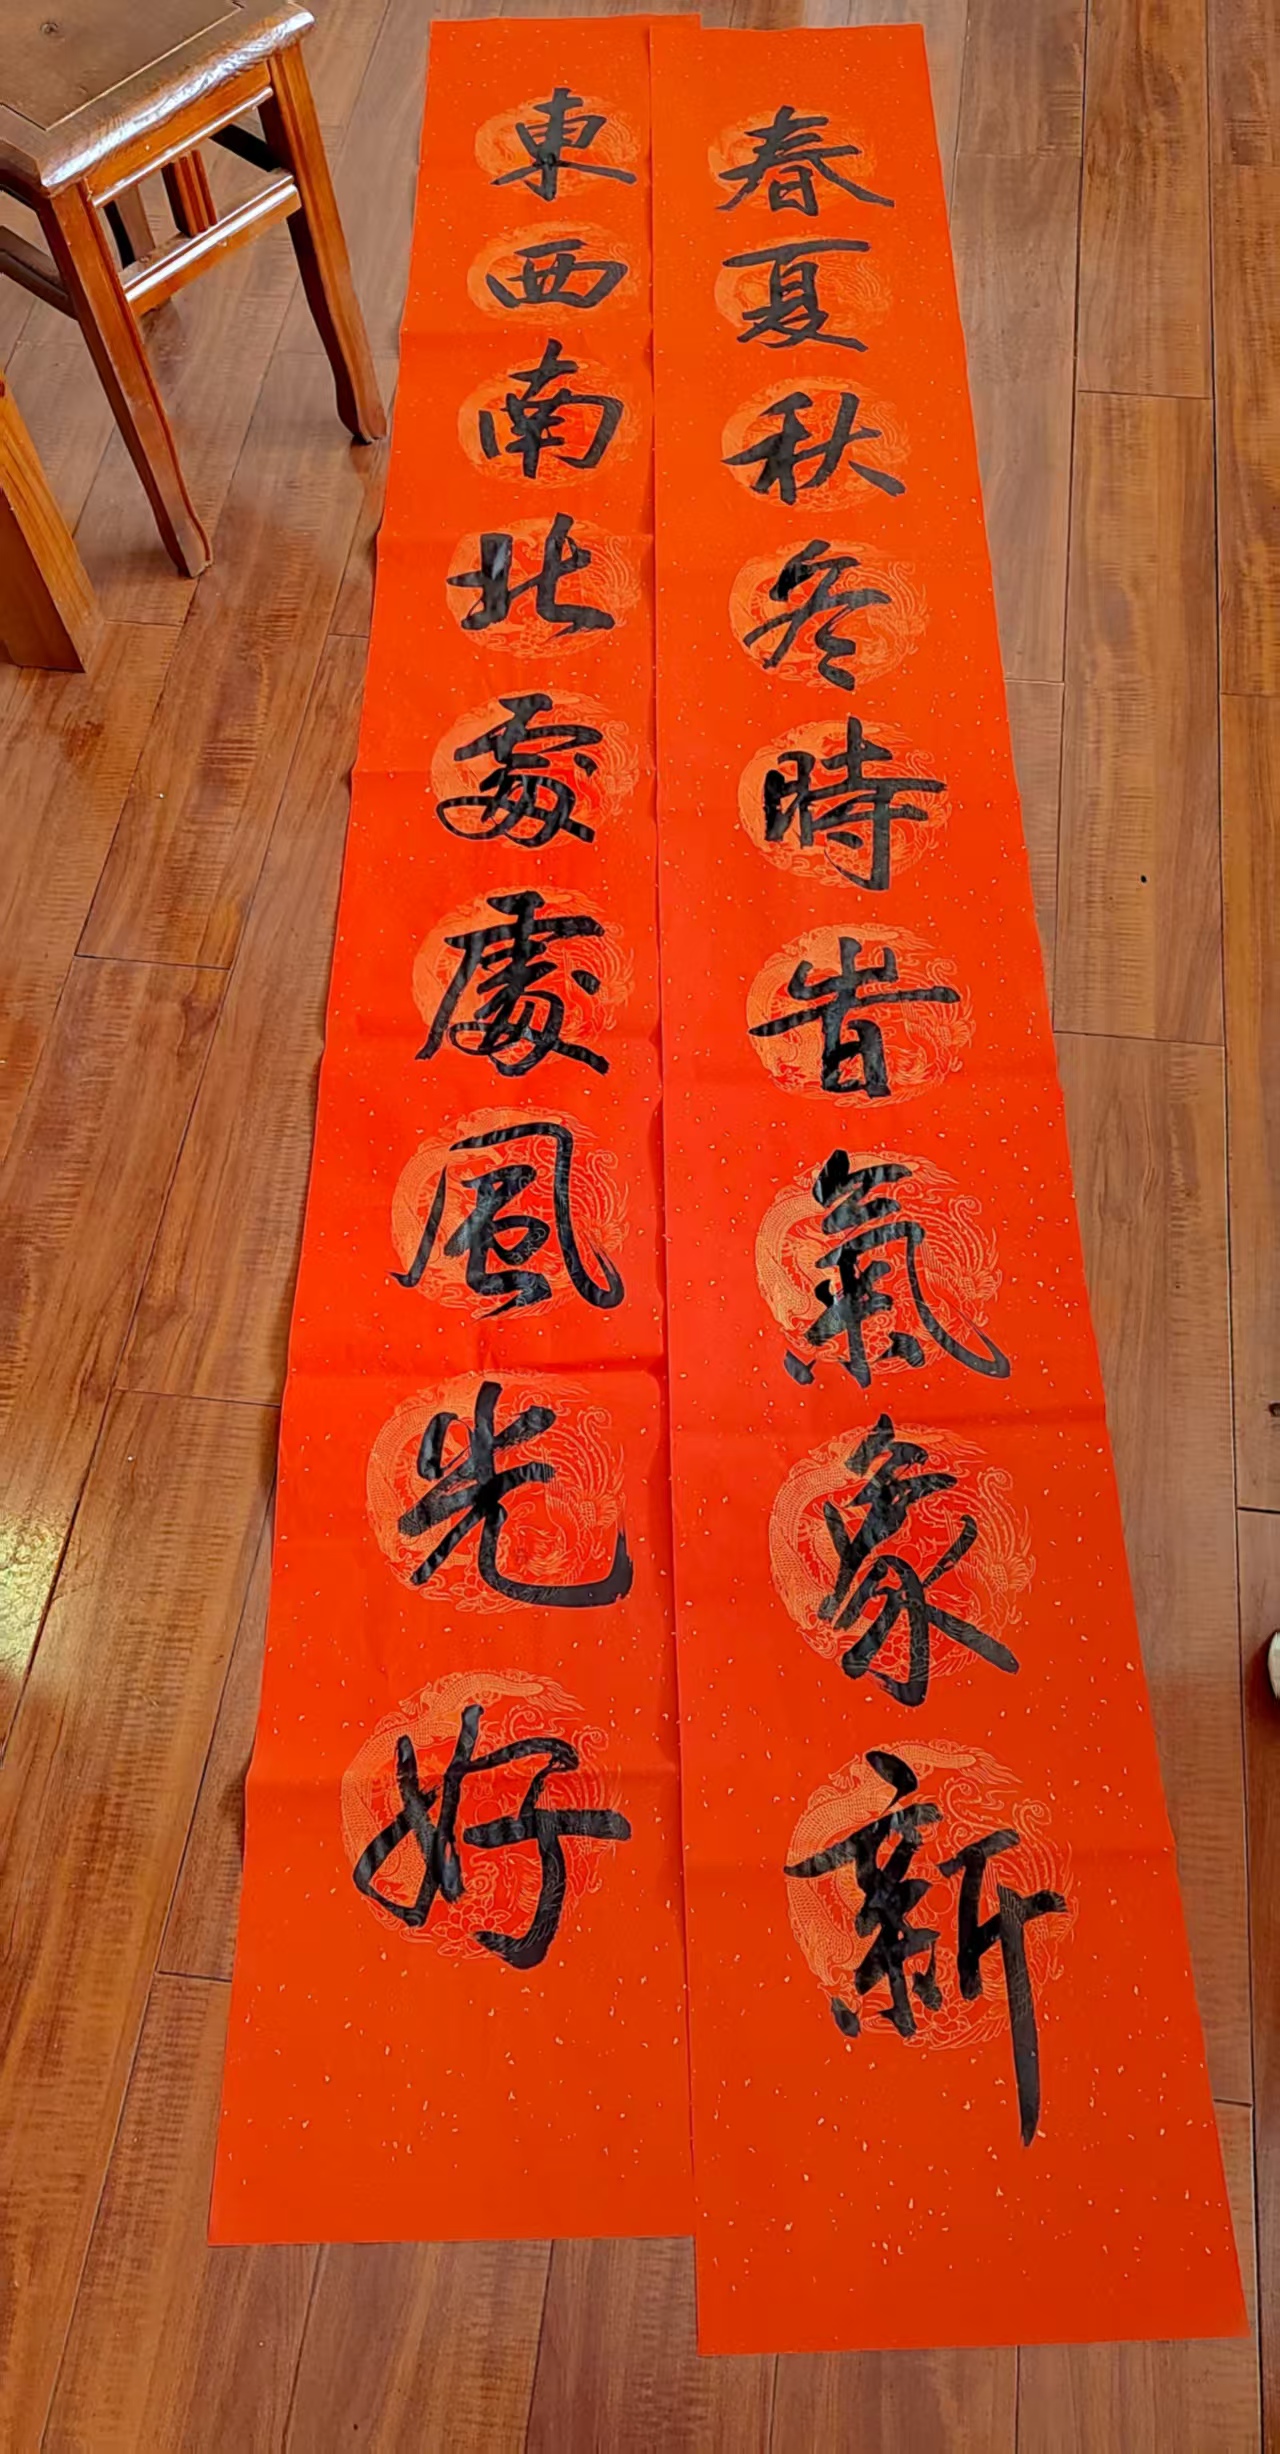 春夏秋冬時旹氣象新
東西南北處處風光好